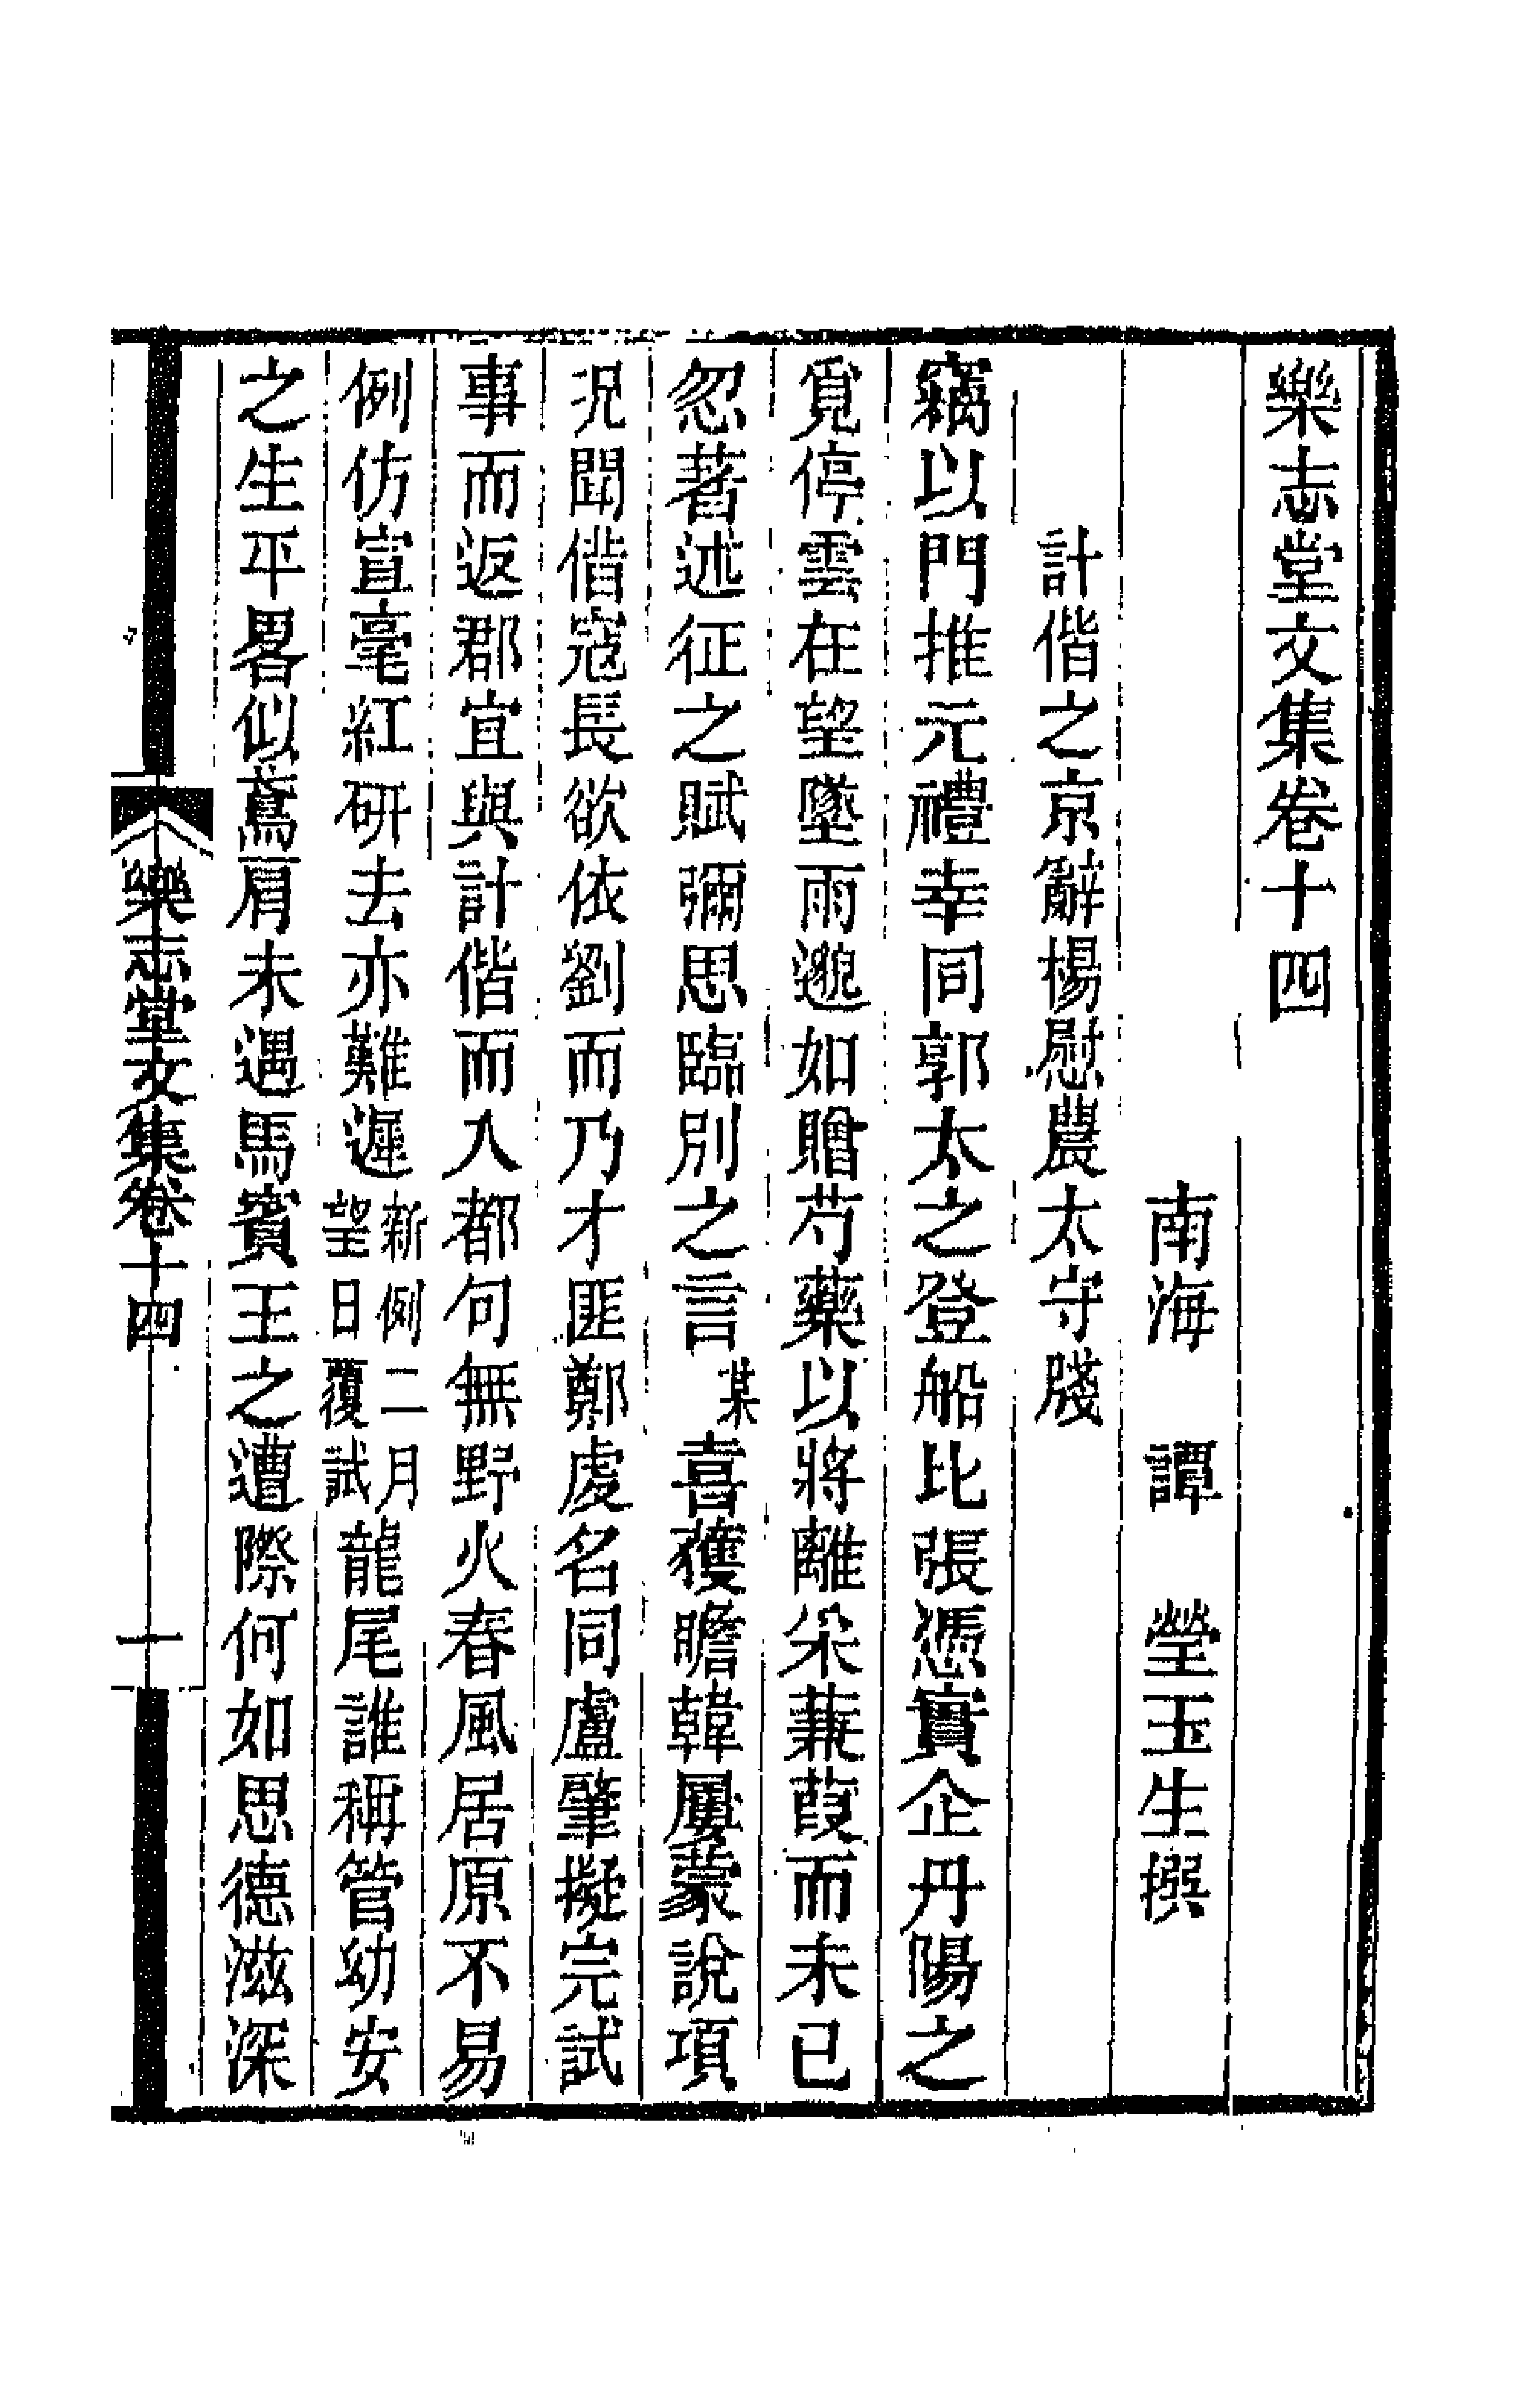 樂志堂文集卷十四
南海 譚 瑩玉生撰
計偕之京辭楊慰農太守牋
竊以門推元禮幸同郭太之登船比張憑實企丹陽之
覓停雲在望墜雨邈如贈芍藥以將離采蒹葭而未已
忽著述征之賦彌思臨別之言某喜獲瞻韓屢蒙說項
況聞借寇長欲依劉而乃才匪鄭虔名同盧肇擬完試
事而返郡宜與計偕而入都句無野火春風居原不易
例仿宣毫紅研去亦難遲新例二月望日覆試龍尾誰稱管幼安
之生平畧似鳶肩未遇馬賓王之遭際何如思德滋深
樂志堂文集卷十四 一